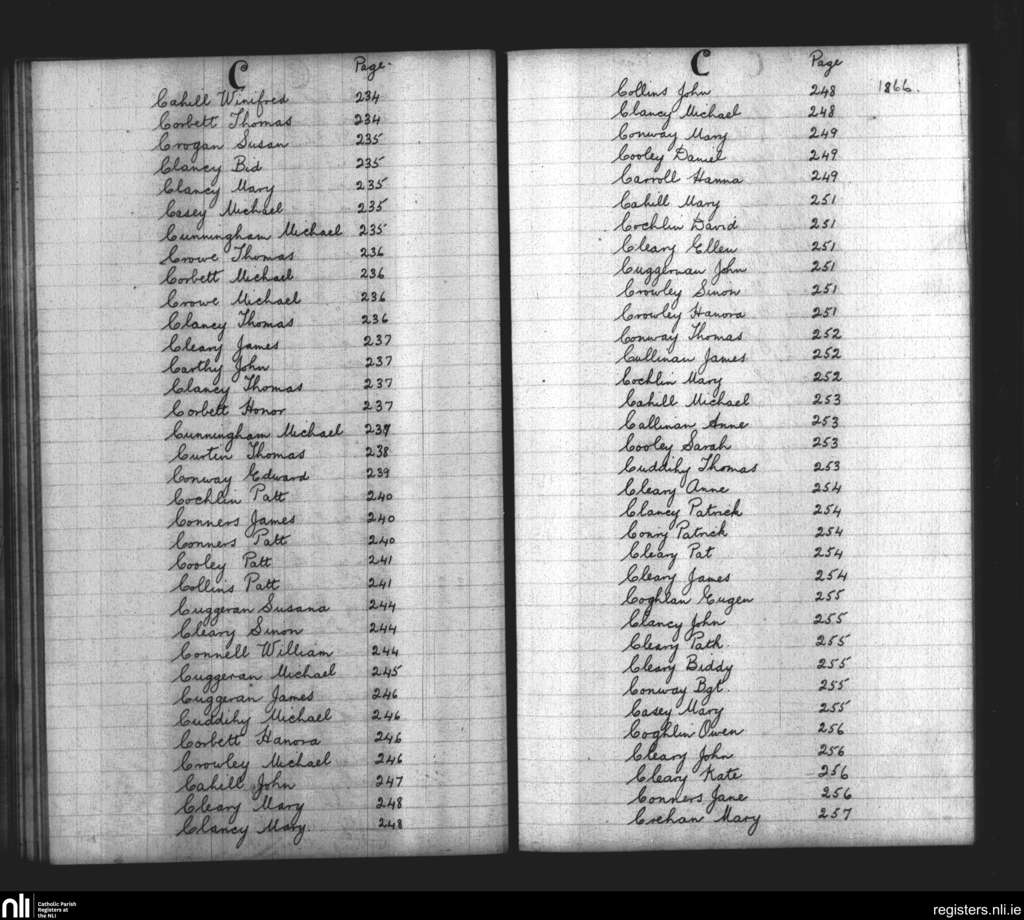 C
Page.
Cahill Winifred 234
Corbett Thomas 234
Crogan Susan 235
Clancy Bid 235
Clancy Mary 235
Casey Michael 235
Cunningham Michael 235
Crowe Thomas 236
Corbett Michael 236
Crowe Michael 236
Clancy Thomas 236
Cleary James 237
Carthy John 237
Clancy Thomas 237
Corbett Honor 237
Cunningham Michael 237
Curtin Thomas 238
Conway Edward 239
Cochlin Patt 240
Conners James 240
Conners Patt 240
Cooley Patt 241
Collins Patt 241
Cuggeran Susana 244
Cleary Sinon 244
Connell William 244
Cuggeran Michael 245
Cuggeran James 246
Cuddihy Michael 246
Corbett Hanora 246
Crowley Michael 246
Cahill John 247
Cleary Mary 248
Clancy Mary. 248
C
Page
Collins John 248 1866.
Clancy Michael 248
Conway Mary 249
Cooley Daniel 249
Carroll Hanna 249
Cahill Mary 251
Cochlin David 251
Cleary Ellen 251
Cuggernan John 251
Crowley Sinon 251
Crowley Hanora 251
Conway Thomas 252
Cullinan James 252
Cochlin Mary 252
Cahill Michael 253
Callinan Anne 253
Cooley Sarah 253
Cuddihy Thomas 253
Cleary Anne 254
Clancy Patrick 254
Conry Patrick 254
Cleary Pat 254
Cleary James 254
Coghlan Eugen 255
Clancy John 255
Cleary Patk. 255
Cleary Biddy 255
Conway Bgt. 255
Casey Mary 255
Coghlin Owen 256
Cleary John 256
Cleary Kate 256
Conners Jane 256
Crehan Mary 257
nli
Catholic Parish
Registers at
the NLI
registers.nli.ie